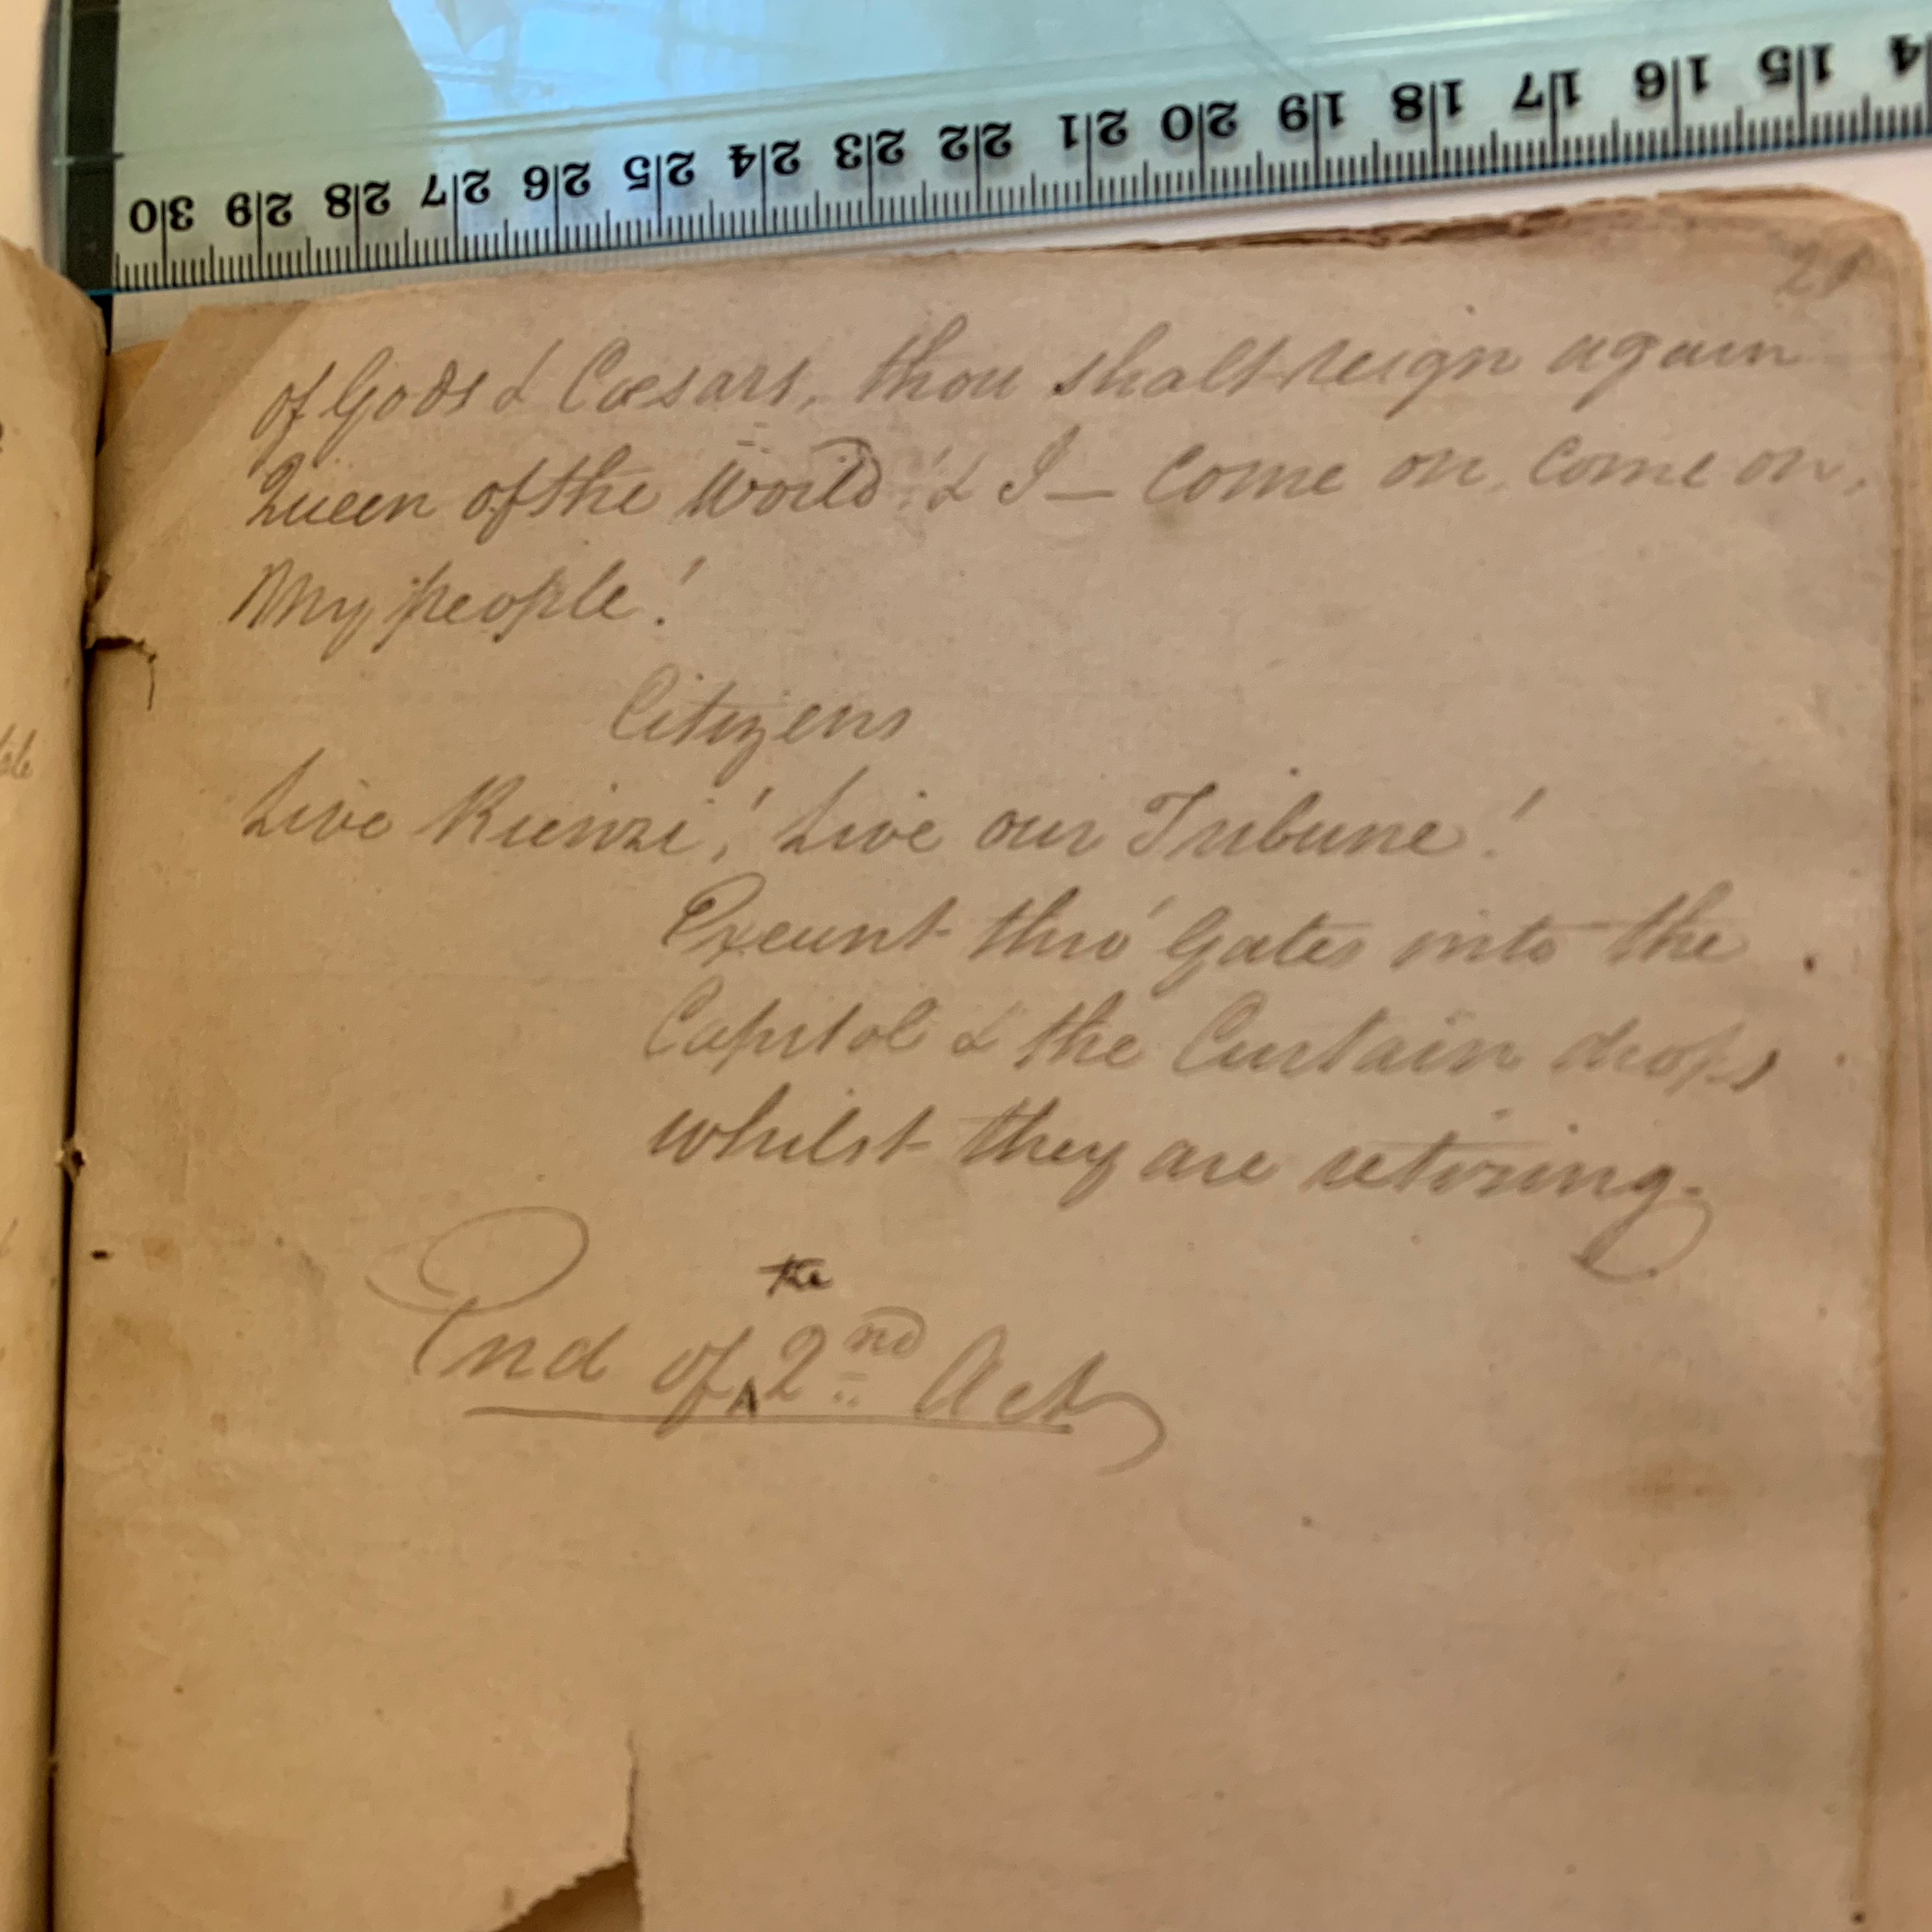 30 29 28 27 26 25 24 23 22 21 20 19 18 17 16 15
21
of Gods & Cæsars, thou shalt reign again
Queen of the World! & I — Come on, Come on,
My people!
Citizens
Live Rienzi! Live our Tribune!
Exeunt thro' Gates into the
Capitol & the Curtain drops
whilst they are retiring.
the
End of ^ 2nd Act